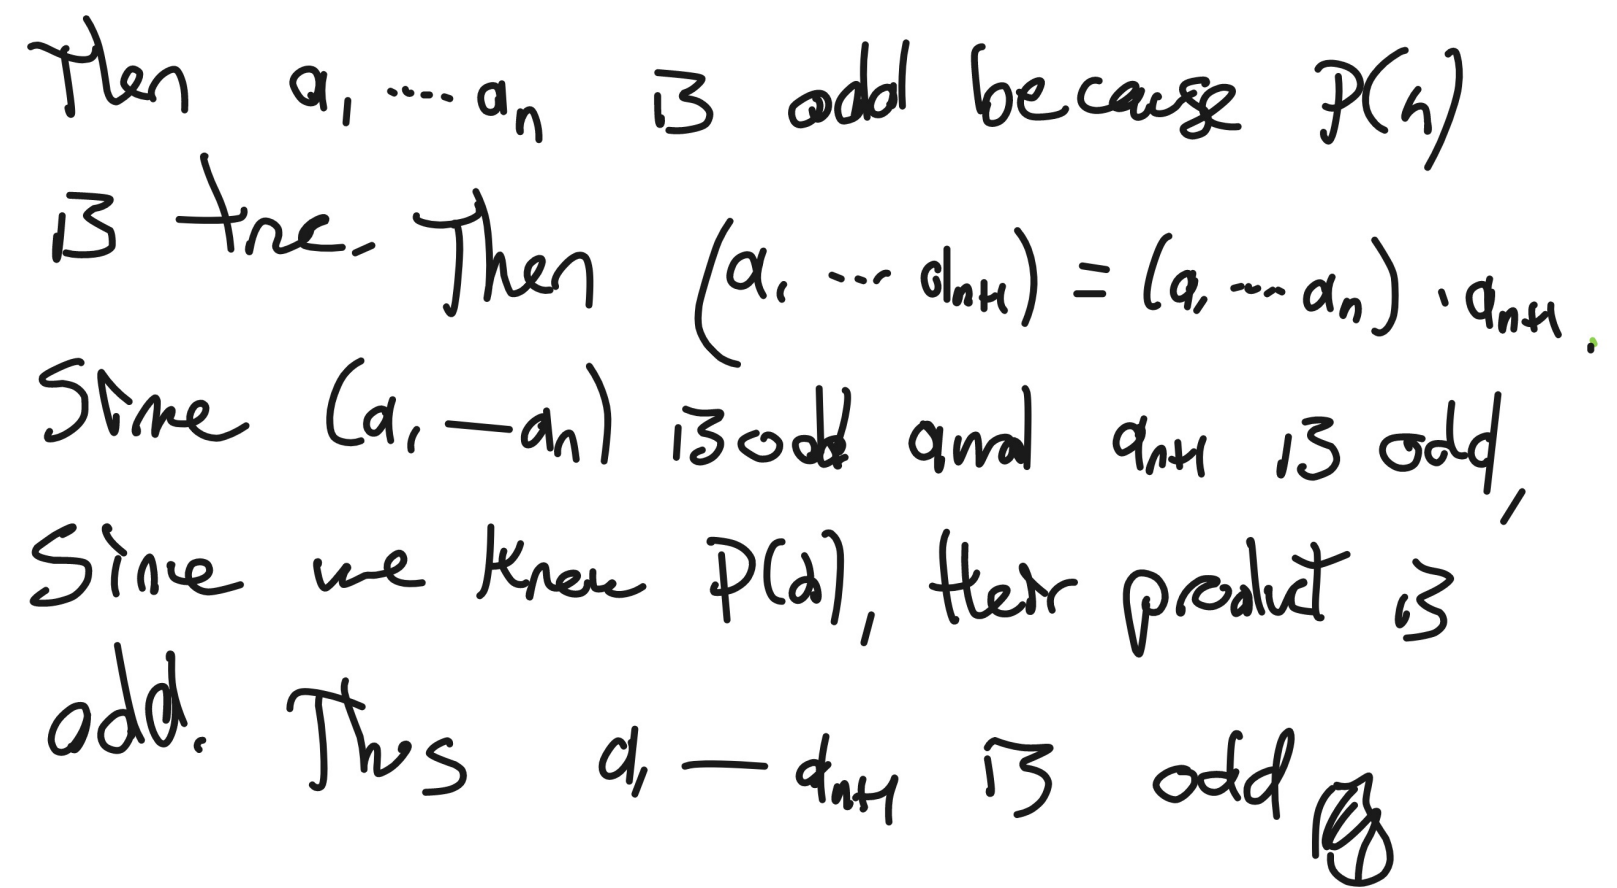 Then a₁ ..... aₙ is odd because P(n)
is true. Then (a₁ ... aₙ₊₁) = (a₁ .... aₙ) · aₙ₊₁.
Since (a₁ — aₙ) is odd and aₙ₊₁ is odd,
Since we know P(2), their product is
odd. Thus a₁ — aₙ₊₁ is odd